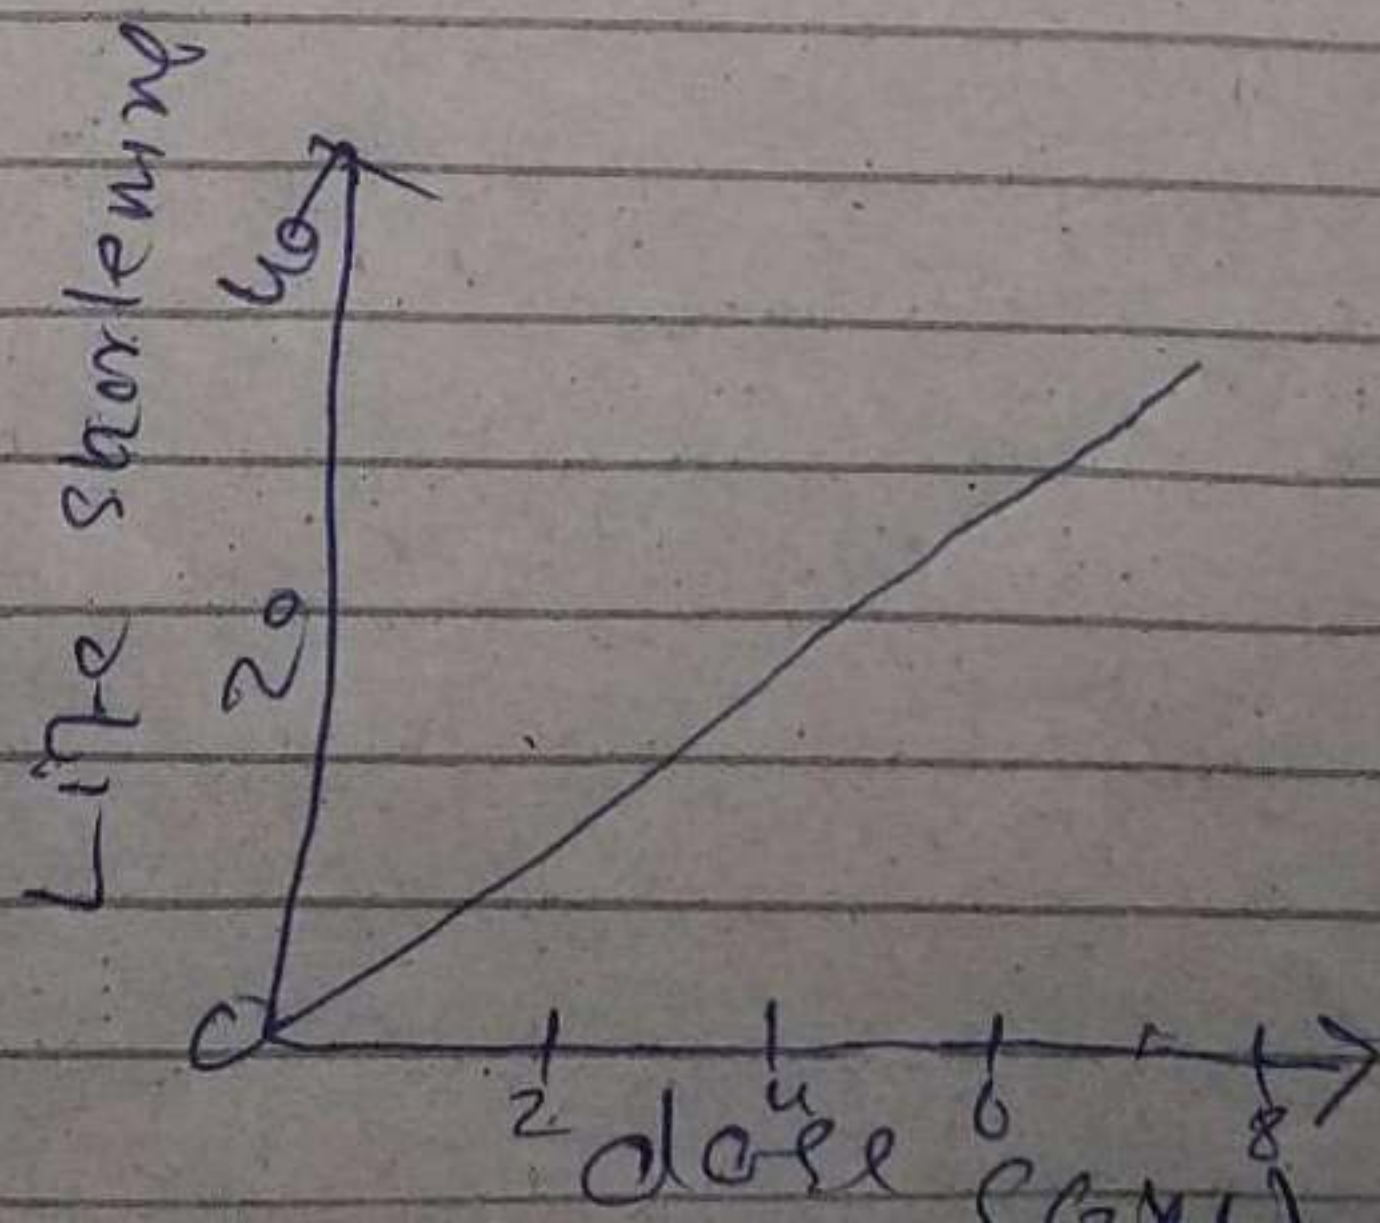 Life shortening
40
20
0
2 4 6 8
dose (Gy)